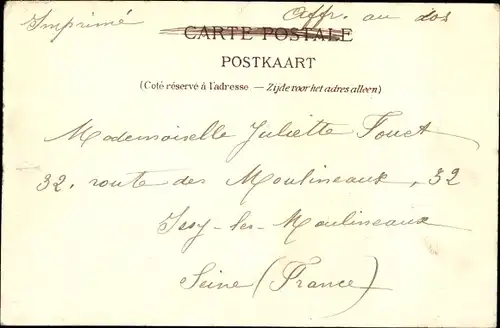 Imprimé Affr. au dos
CARTE POSTALE
POSTKAART
(Coté réservé à l'adresse — Zijde voor het adres alleen)
Mademoiselle Juliette Fouet
32, route des Moulineaux, 32
Issy-les-Moulineaux
Seine (France)